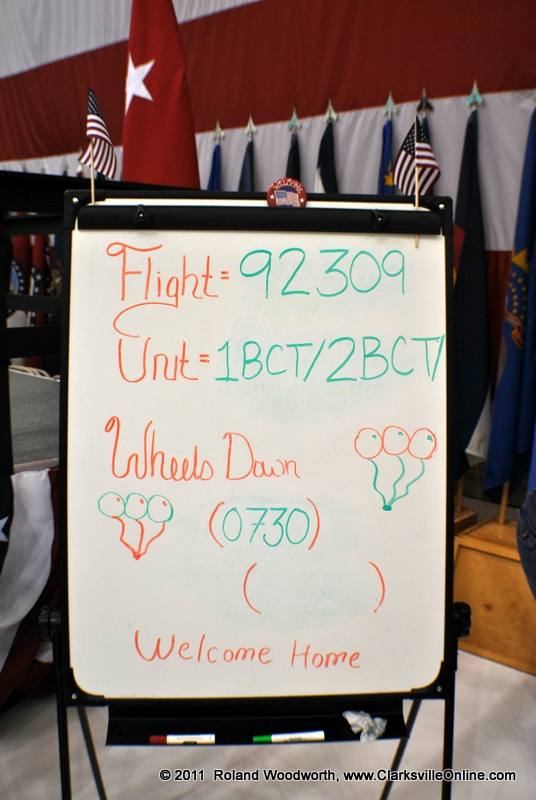 WELCOME
Flight = 92309
Unit = 1BCT/2BCT/
Wheels Down
(0730)
( )
Welcome Home
© 2011 Roland Woodworth, www.ClarksvilleOnline.com